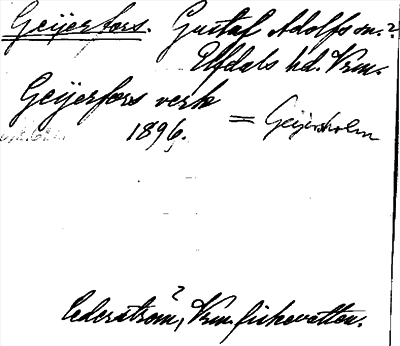 Geijerfors. Gustaf Adolfs sn.?
Elfdals hd. Vrm.
Geijerfors verk
1896. = Geijersholm
Cederström?, Vrm. fiskevatten.